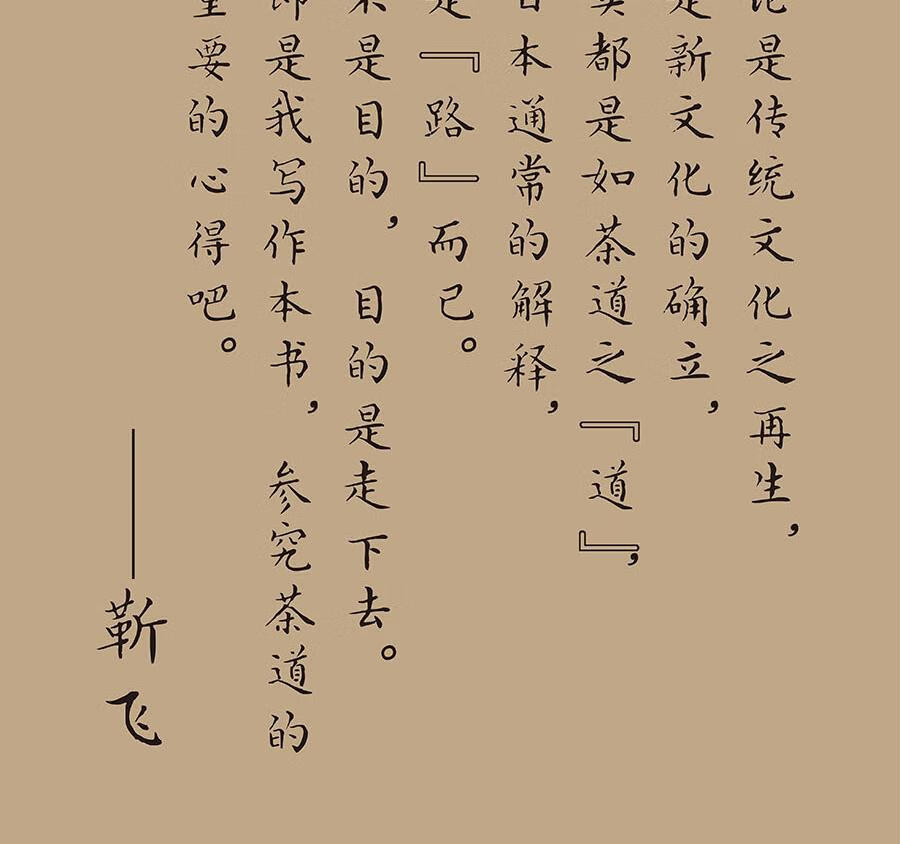 是传统文化之再生，
新文化的确立，
都是如茶道之『道』，
本通常的解释，
『路』而已。
是目的，目的是走下去。
是我写作本书，参究茶道的
要的心得吧。
——靳飞